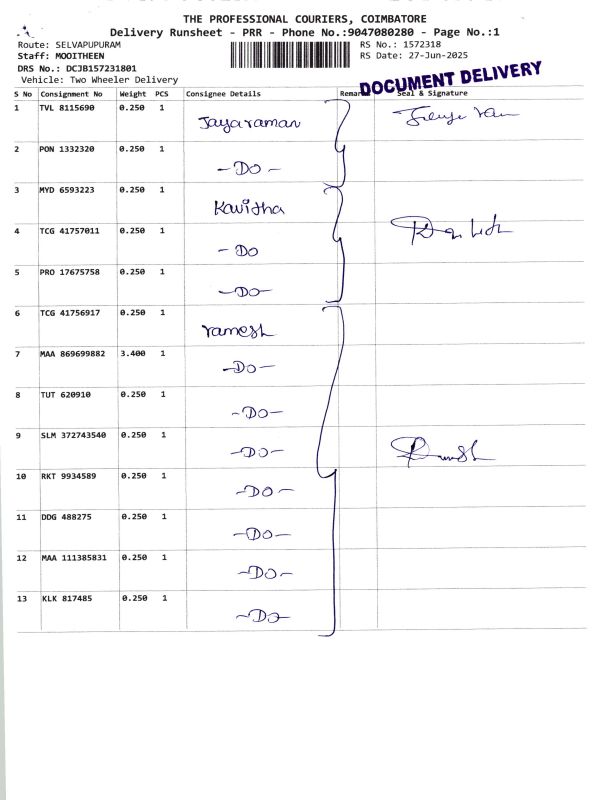 THE PROFESSIONAL COURIERS, COIMBATORE
Delivery Runsheet - PRR - Phone No.:9047080280 - Page No.:1
Route: SELVAPUPURAM
RS No.: 1572318
Staff: MOOITHEEN
RS Date: 27-Jun-2025
DRS No.: DCJB157231801
Vehicle: Two Wheeler Delivery
DOCUMENT DELIVERY
S No Consignment No Weight PCS Consignee Details Remarks Seal & Signature
1 TVL 8115690 0.250 1 Jayaraman
2 PON 1332320 0.250 1 -DO-
3 MYD 6593223 0.250 1 Kavitha
4 TCG 41757011 0.250 1 -DO
5 PRO 17675758 0.250 1 -DO-
6 TCG 41756917 0.250 1 ramesh
7 MAA 869699882 3.400 1 -DO-
8 TUT 620910 0.250 1 -DO-
9 SLM 372743540 0.250 1 -DO-
10 RKT 9934589 0.250 1 -DO-
11 DDG 488275 0.250 1 -DO-
12 MAA 111385831 0.250 1 -DO-
13 KLK 817485 0.250 1 -DO-